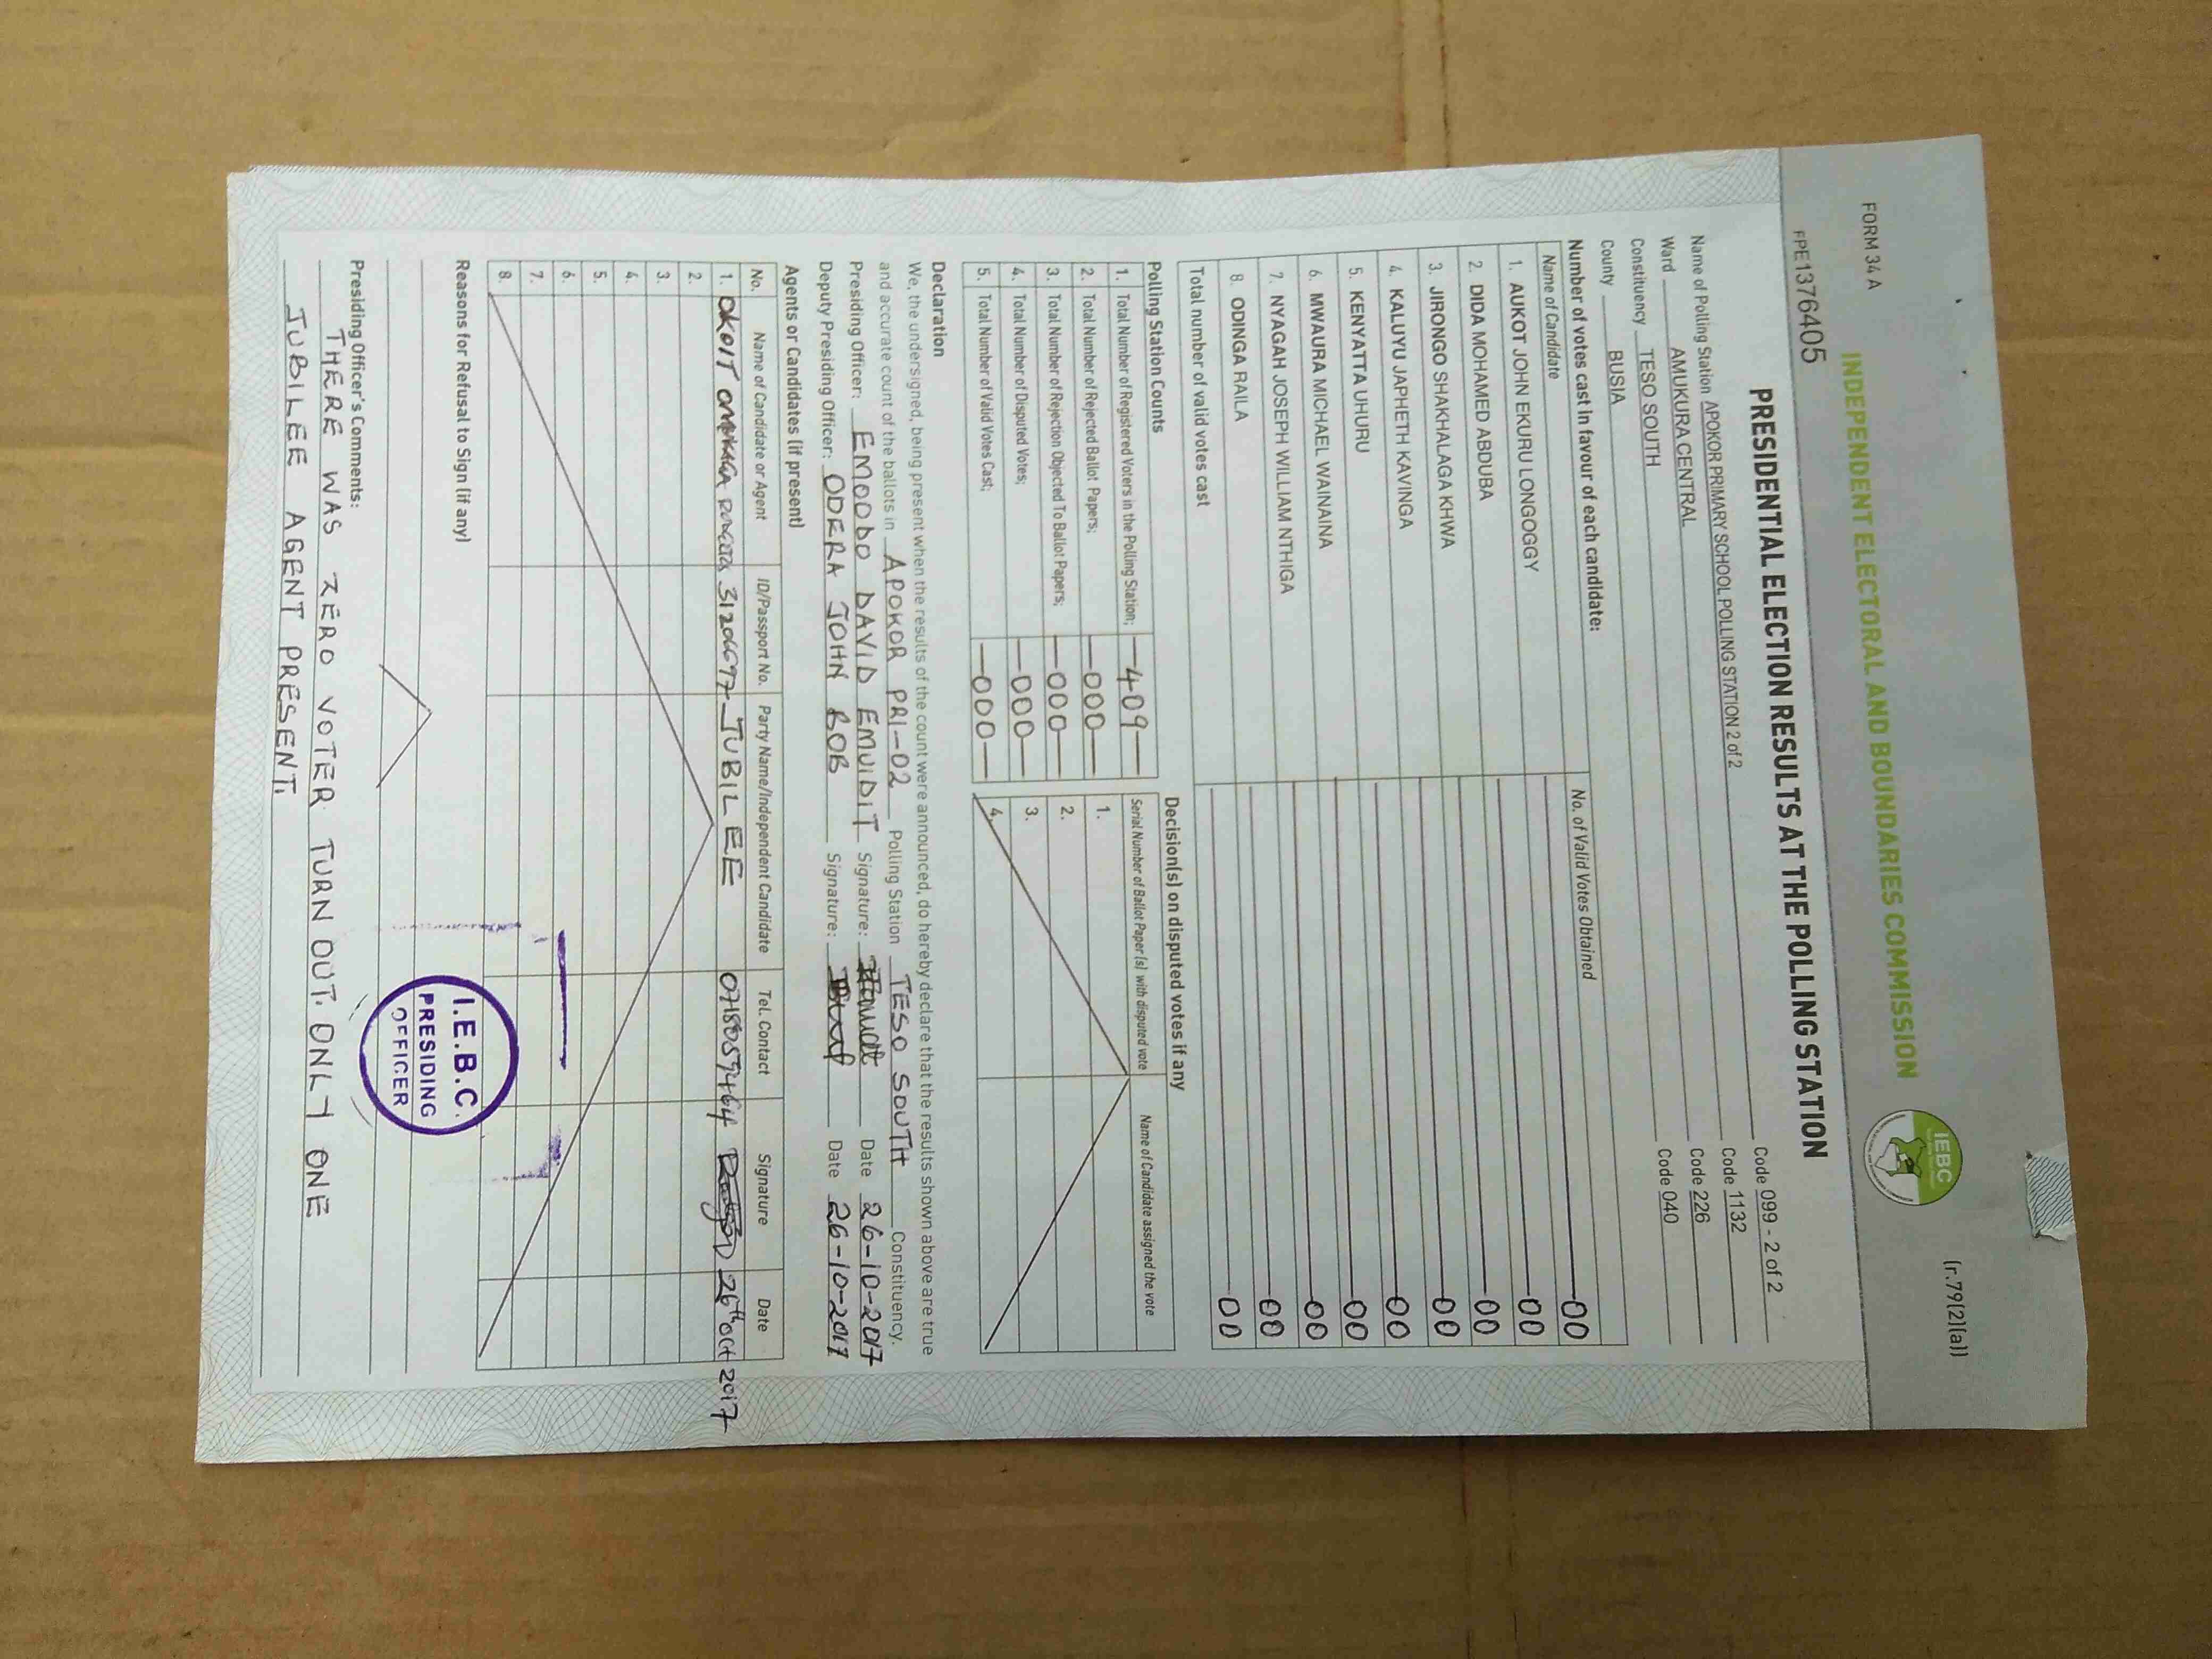 FORM 34A
(r.79(2)(a))
INDEPENDENT ELECTORAL AND BOUNDARIES COMMISSION
IEBC
FPE1376405
PRESIDENTIAL ELECTION RESULTS AT THE POLLING STATION
Name of Polling Station APOKOR PRIMARY SCHOOL POLLING STATION 2 of 2 Code 099 - 2 of 2
Ward AMUKURA CENTRAL Code 1132
Constituency TESO SOUTH Code 226
County BUSIA Code 040
Number of votes cast in favour of each candidate:
Name of Candidate No. of Valid Votes Obtained
1. AUKOT JOHN EKURU LONGOGGY 00
2. DIDA MOHAMED ABDUBA 00
3. JIRONGO SHAKHALAGA KHWA 00
4. KALUYU JAPHETH KAVINGA 00
5. KENYATTA UHURU 00
6. MWAURA MICHAEL WAINAINA 00
7. NYAGAH JOSEPH WILLIAM NTHIGA 00
8. ODINGA RAILA 00
Total number of valid votes cast 00
Polling Station Counts
1. Total Number of Registered Voters in the Polling Station; —409—
2. Total Number of Rejected Ballot Papers; —000—
3. Total Number of Rejection Objected To Ballot Papers; —000—
4. Total Number of Disputed Votes; —000—
5. Total Number of Valid Votes Cast; —000—
Decision(s) on disputed votes if any
Serial Number of Ballot Paper (s) with disputed vote Name of Candidate assigned the vote
1.
2.
3.
4.
Declaration
We, the undersigned, being present when the results of the count were announced, do hereby declare that the results shown above are true
and accurate count of the ballots in APOKOR PRI-02 Polling Station TESO SOUTH Constituency.
Presiding Officer: EMOODO DAVID EMUIDIT Signature: Date 26-10-2017
Deputy Presiding Officer: ODERA JOHN BOB Signature: Date 26-10-2017
Agents or Candidates (if present)
No. Name of Candidate or Agent ID/Passport No. Party Name/Independent Candidate Tel. Contact Signature Date
1. OKOIT JUBILEE 26th Oct 2017
2.
3.
4.
5.
6.
7.
8.
Reasons for Refusal to Sign (if any)
I.E.B.C.
PRESIDING
OFFICER
Presiding Officer's Comments:
THERE WAS ZERO VOTER TURN OUT. ONLY ONE
JUBILEE AGENT PRESENT.